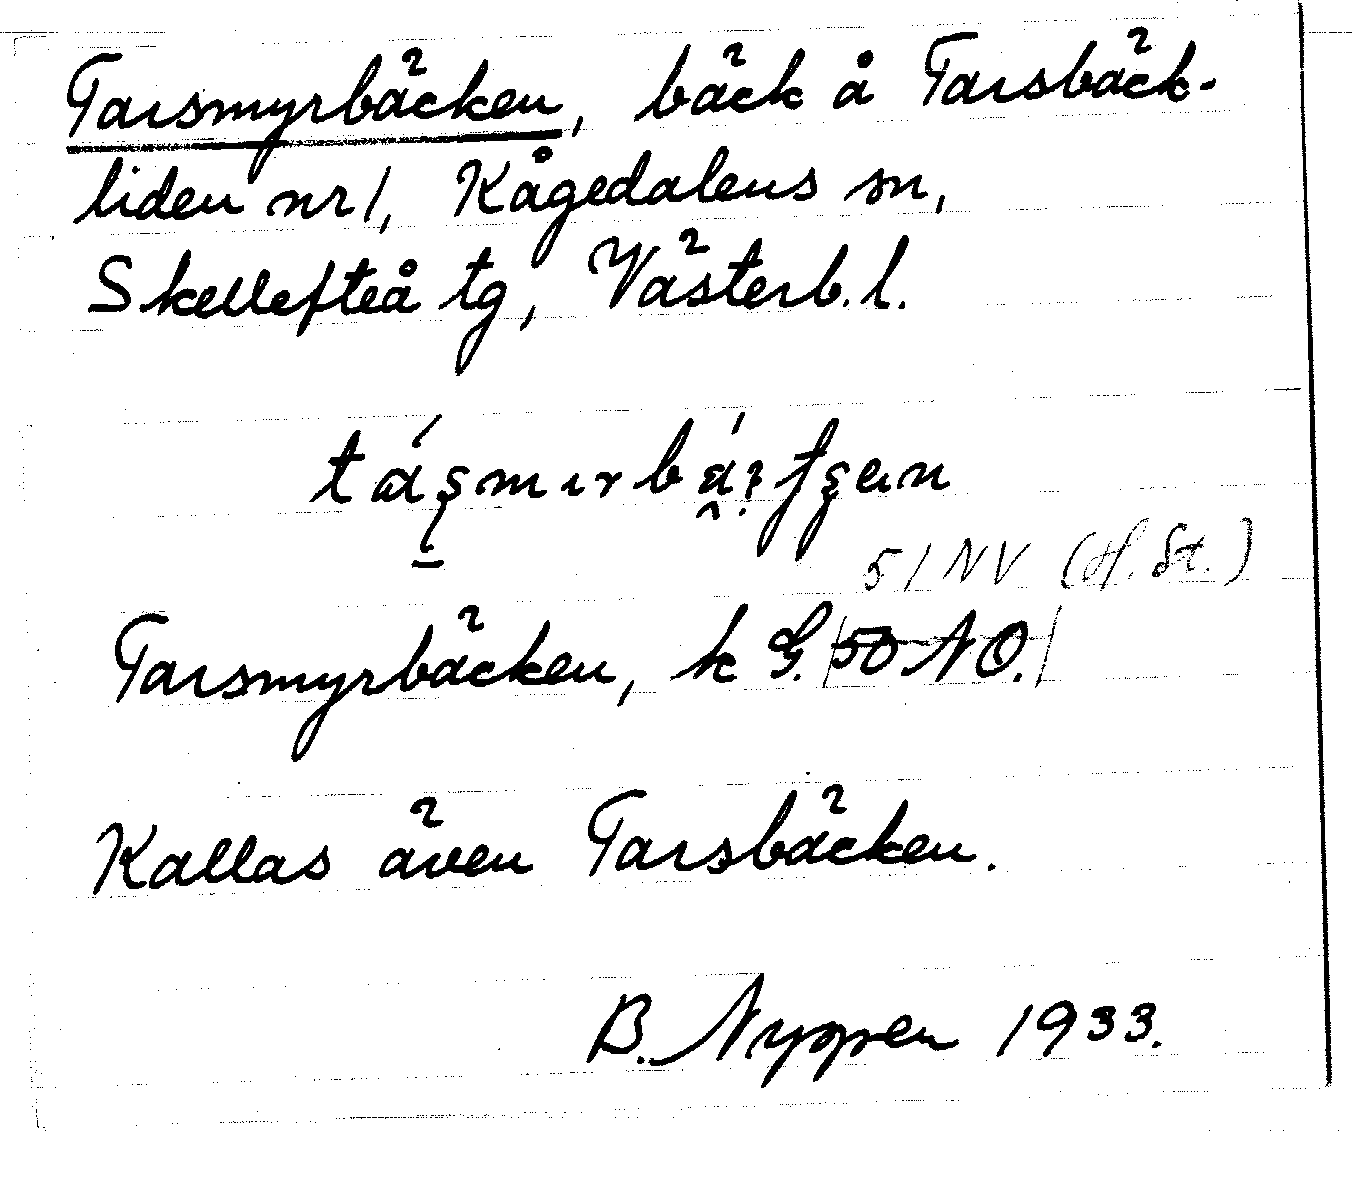 Tarsmyrbäcken, bäck å Tarsbäck-
liden nr 1, Kågedalens sn,
Skellefteå tg, Västerb. l.
51 NV (H. St.)
Tarsmyrbäcken, k G. 50 NO.
Kallas även Tarsbäcken.
B. Nyppen 1933.